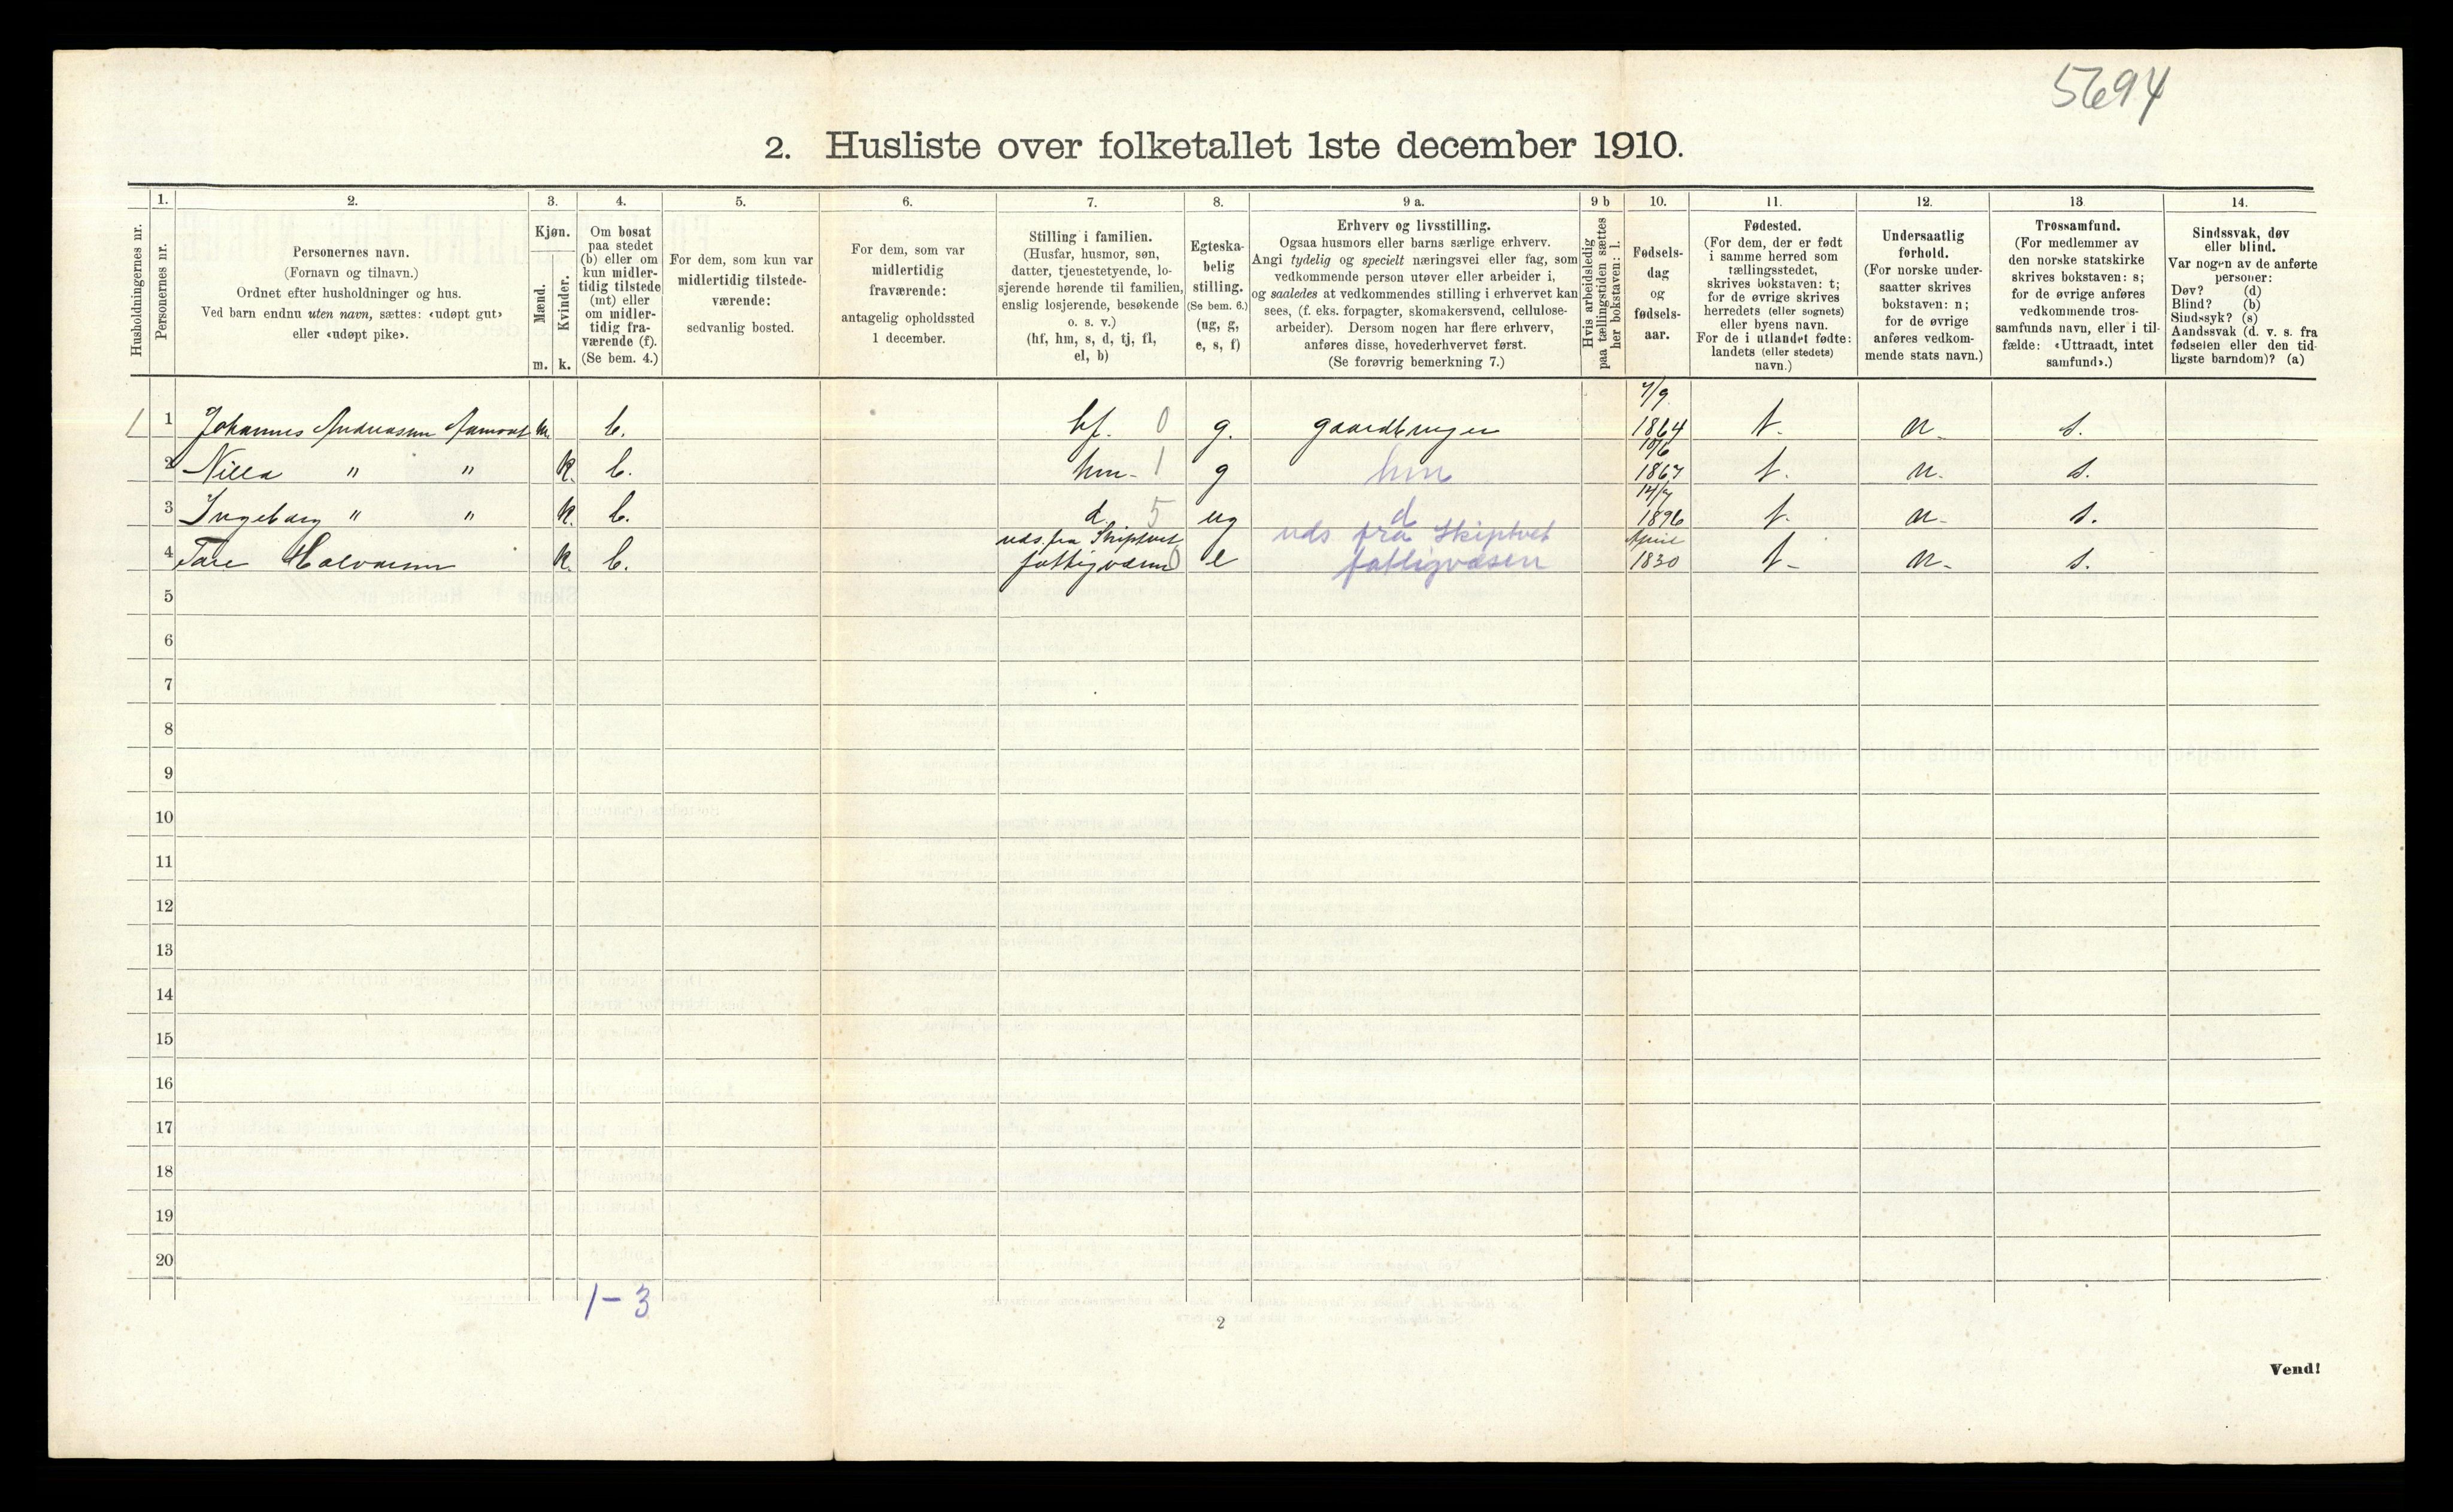 5694
2. Husliste over folketallet 1ste december 1910.
Husholdningernes nr.
1.
Personernes nr.
2.
Personernes navn.
(Fornavn og tilnavn.)
Ordnet efter husholdninger og hus.
Ved barn endnu uten navn, sættes: «udøpt gut»
eller «udøpt pike».
3.
Kjøn.
Mænd.
Kvinder.
m. k.
4.
Om bosat
paa stedet
(b) eller om
kun midler-
tidig tilstede
(mt) eller
om midler-
tidig fra-
værende (f).
(Se bem. 4.)
5.
For dem, som kun var
midlertidig tilstede-
værende:
sedvanlig bosted.
6.
For dem, som var
midlertidig
fraværende:
antagelig opholdssted
1 december.
7.
Stilling i familien.
(Husfar, husmor, søn,
datter, tjenestetyende, lo-
sjerende hørende til familien,
enslig losjerende, besøkende
o. s. v.)
(hf, hm, s, d, tj, fl,
el, b)
8.
Egteska-
belig
stilling.
(Se bem. 6.)
(ug, g,
e, s, f)
9 a.
Erhverv og livsstilling.
Ogsaa husmors eller barns særlige erhverv.
Angi tydelig og specielt næringsvei eller fag, som
vedkommende person utøver eller arbeider i,
og saaledes at vedkommendes stilling i erhvervet kan
sees, (f. eks. forpagter, skomakersvend, cellulose-
arbeider). Dersom nogen har flere erhverv,
anføres disse, hovederhvervet først.
(Se forøvrig bemerkning 7.)
9 b
Hvis arbeidsledig
paa tællingstiden sættes
her bokstaven: l.
10.
Fødsels-
dag
og
fødsels-
aar.
11.
Fødested.
(For dem, der er født
i samme herred som
tællingsstedet,
skrives bokstaven: t;
for de øvrige skrives
herredets (eller sognets)
eller byens navn.
For de i utlandet fødte:
landets (eller stedets)
navn.)
12.
Undersaatlig
forhold.
(For norske under-
saatter skrives
bokstaven: n;
for de øvrige
anføres vedkom-
mende stats navn.)
13
Trossamfund.
(For medlemmer av
den norske statskirke
skrives bokstaven: s;
for de øvrige anføres
vedkommende tros-
samfunds navn, eller i til-
fælde: «Uttraadt, intet
samfund».)
14.
Sindssvak, døv
eller blind.
Var nogen av de anførte
personer:
Døv? (d)
Blind? (b)
Sindssyk? (s)
Aandssvak (d. v. s. fra
fødselen eller den tid-
ligste barndom)? (a)
1 1 Johannes Andreasen m. b. hf. 0 g. gaardbruger 7/9 1864 t. n. s.
2 " " k. b. hm- 1 g hm 10/6 1867 t. n. s.
3 Ingeborg " " k. b. d. 5 ug d 1896 t. n. s.
4 Halvorsen k. b. uds. fra Skiptvet fattigvæsen 0 e uds fra Skiptvet fattigvæsen April 1830 t- n- s.
5
6
7
8
9
10
11
12
13
14
15
16
17
18
19
20
1-3
2
Vend!